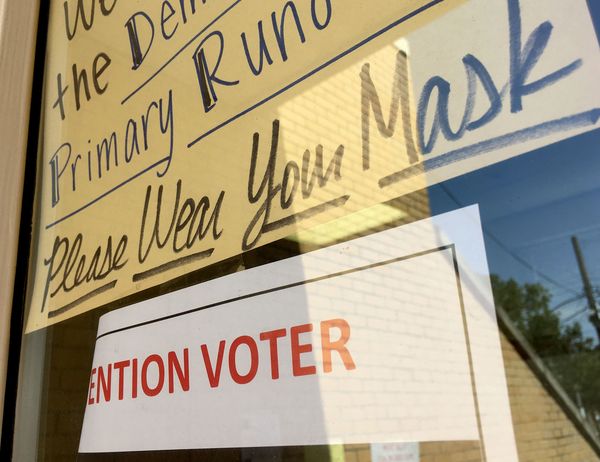 We
the Dem
Primary Runo
Please Wear Your Mask
ENTION VOTER